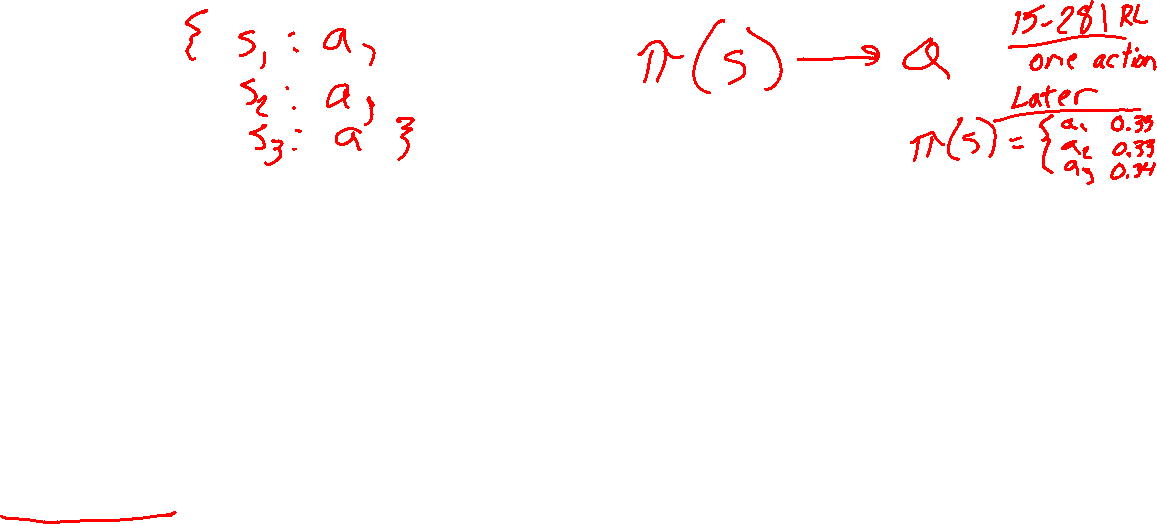 { s₁ : a,
s₂ : a,
s₃ : a }
π(s) → a
15-281 RL
one action
Later
π(s) = { a₁ 0.33
a₂ 0.33
a₃ 0.34